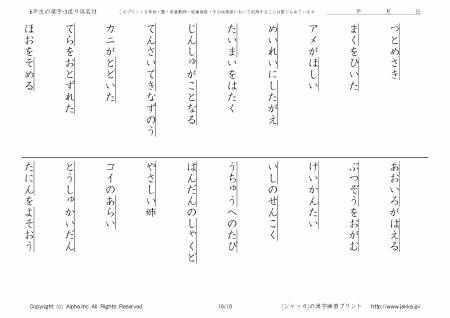 6年生の漢字-3送り仮名付
このプリントを学校・塾・家庭教師・医療機関・その他施設において利用することは禁じられています
年 月 日
つとめさき
まくをひいた
アメがほしい
めいれいにしたがえ
たいまいをはたく
じんしゅがことなる
てんさいてきなずのう
カニがとどいた
てらをおとずれた
ほおをそめる
あおいろがはえる
ぶつぞうをおがむ
けいかんたい
いしのせんこく
うちゅうへのたび
はんだんのしゃくど
やさしい姉
コイのあらい
とうしゅかいだん
たにんをよそおう
Copyright (c) Alpha.Inc All Rights Reserved.
10/10
[ジャッカ]の漢字練習プリント http://www.jakka.jp/